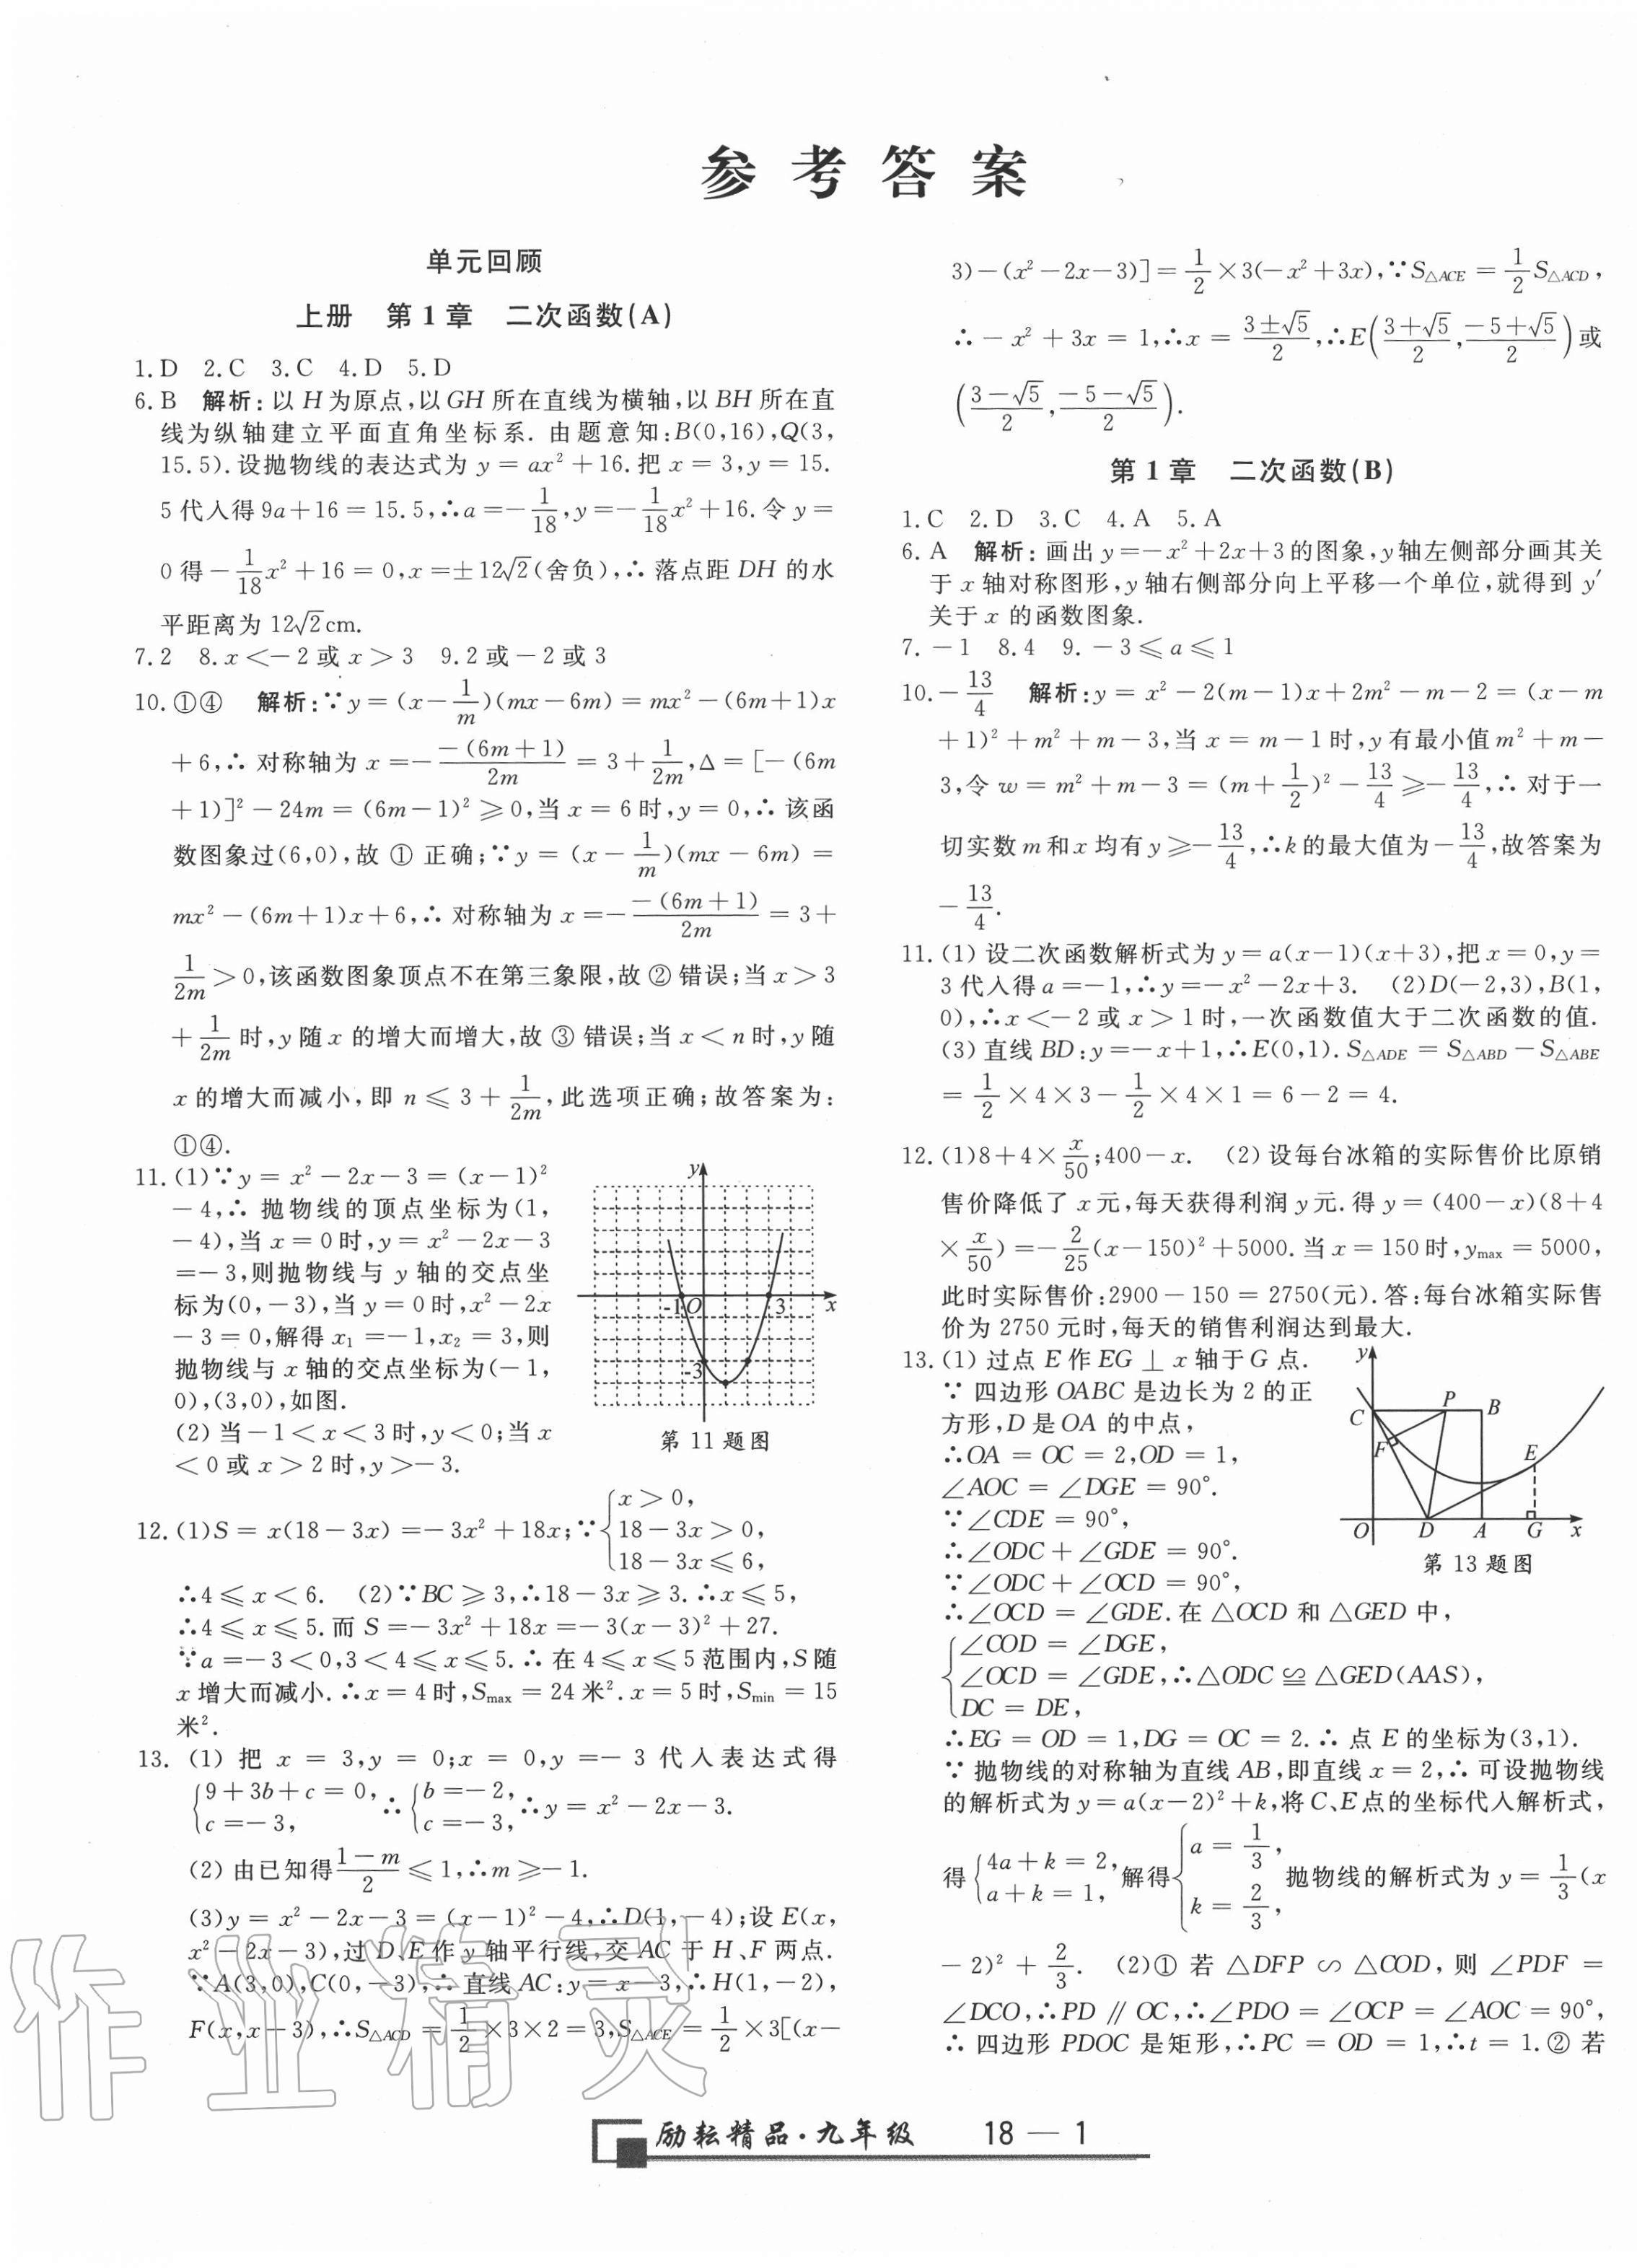 参考答案
单元回顾
上册 第1章 二次函数(A)
1.D 2.C 3.C 4.D 5.D
6.B 解析:以H为原点,以GH所在直线为横轴,以BH所在直
线为纵轴建立平面直角坐标系.由题意知:B(0,16),Q(3,
15.5).设抛物线的表达式为 y = ax² + 16.把 x = 3,y = 15.
5代入得9a+16=15.5,∴a=-1/18,y=-1/18x²+16.令y=
0得-1/18x²+16=0,x=±12√2(舍负),∴落点距DH的水
平距离为12√2cm.
7.2 8.x<-2或x>3 9.2或-2或3
10.①④ 解析:∵y=(x-1/m)(mx-6m)=mx²-(6m+1)x
+6,∴对称轴为x=-(-(6m+1))/(2m)=3+1/(2m),Δ=[-(6m
+1)]²-24m=(6m-1)²≥0,当x=6时,y=0,∴该函
数图象过(6,0),故①正确;∵y=(x-1/m)(mx-6m)=
mx²-(6m+1)x+6,∴对称轴为x=-(-(6m+1))/(2m)=3+
1/(2m)>0,该函数图象顶点不在第三象限,故②错误;当x>3
+1/(2m)时,y随x的增大而增大,故③错误;当x<n时,y随
x的增大而减小,即n≤3+1/(2m),此选项正确;故答案为:
①④.
11.(1)∵y=x²-2x-3=(x-1)²
-4,∴抛物线的顶点坐标为(1,
-4),当x=0时,y=x²-2x-3
=-3,则抛物线与y轴的交点坐
标为(0,-3),当y=0时,x²-2x
-3=0,解得x₁=-1,x₂=3,则
抛物线与x轴的交点坐标为(-1,
0),(3,0),如图.
(2)当-1<x<3时,y<0;当x
<0或x>2时,y>-3.
y
-1 O 3 x
-3
第11题图
12.(1)S=x(18-3x)=-3x²+18x;∵{x>0,
18-3x>0,
18-3x≤6,
∴4≤x<6. (2)∵BC≥3,∴18-3x≥3.∴x≤5,
∴4≤x≤5.而S=-3x²+18x=-3(x-3)²+27.
∵a=-3<0,3<4≤x≤5.∴在4≤x≤5范围内,S随
x增大而减小.∴x=4时,Smax=24米².x=5时,Smin=15
米².
13.(1)把x=3,y=0;x=0,y=-3代入表达式得
{9+3b+c=0, ∴{b=-2, ∴y=x²-2x-3.
c=-3, c=-3,
(2)由已知得(1-m)/2≤1,∴m≥-1.
(3)y=x²-2x-3=(x-1)²-4,∴D(1,-4);设E(x,
x²-2x-3),过D、E作y轴平行线,交AC于H、F两点.
∵A(3,0),C(0,-3),∴直线AC:y=x-3,∴H(1,-2),
F(x,x-3),∴S△ACD=1/2×3×2=3,S△ACE=1/2×3[(x-
3)-(x²-2x-3)]=1/2×3(-x²+3x),∵S△ACE=1/2S△ACD,
∴-x²+3x=1,∴x=(3±√5)/2,∴E((3+√5)/2,(-5+√5)/2)或
((3-√5)/2,(-5-√5)/2).
第1章 二次函数(B)
1.C 2.D 3.C 4.A 5.A
6.A 解析:画出y=-x²+2x+3的图象,y轴左侧部分画其关
于x轴对称图形,y轴右侧部分向上平移一个单位,就得到y′
关于x的函数图象.
7.-1 8.4 9.-3≤a≤1
10.-13/4 解析:y=x²-2(m-1)x+2m²-m-2=(x-m
+1)²+m²+m-3,当x=m-1时,y有最小值m²+m-
3,令w=m²+m-3=(m+1/2)²-13/4≥-13/4,∴对于一
切实数m和x均有y≥-13/4,∴k的最大值为-13/4,故答案为
-13/4.
11.(1)设二次函数解析式为y=a(x-1)(x+3),把x=0,y=
3代入得a=-1,∴y=-x²-2x+3. (2)D(-2,3),B(1,
0),∴x<-2或x>1时,一次函数值大于二次函数的值.
(3)直线BD:y=-x+1,∴E(0,1).S△ADE=S△ABD-S△ABE
=1/2×4×3-1/2×4×1=6-2=4.
12.(1)8+4×x/50;400-x. (2)设每台冰箱的实际售价比原销
售价降低了x元,每天获得利润y元.得y=(400-x)(8+4
×x/50)=-2/25(x-150)²+5000.当x=150时,ymax=5000,
此时实际售价:2900-150=2750(元).答:每台冰箱实际售
价为2750元时,每天的销售利润达到最大.
13.(1)过点E作EG⊥x轴于G点.
∵四边形OABC是边长为2的正
方形,D是OA的中点,
∴OA=OC=2,OD=1,
∠AOC=∠DGE=90°.
∵∠CDE=90°,
∴∠ODC+∠GDE=90°.
∵∠ODC+∠OCD=90°,
∴∠OCD=∠GDE.在△OCD和△GED中,
y
C P B
F E
O D A G x
第13题图
{∠COD=∠DGE,
∠OCD=∠GDE,∴△ODC≌△GED(AAS),
DC=DE,
∴EG=OD=1,DG=OC=2.∴点E的坐标为(3,1).
∵抛物线的对称轴为直线AB,即直线x=2,∴可设抛物线
的解析式为y=a(x-2)²+k,将C、E点的坐标代入解析式,
得{4a+k=2, a+k=1, 解得{a=1/3, k=2/3, 抛物线的解析式为y=1/3(x
-2)²+2/3. (2)①若△DFP∽△COD,则∠PDF=
∠DCO,∴PD∥OC,∴∠PDO=∠OCP=∠AOC=90°,
∴四边形PDOC是矩形,∴PC=OD=1,∴t=1.②若
作业精灵
励耘精品·九年级 18—1